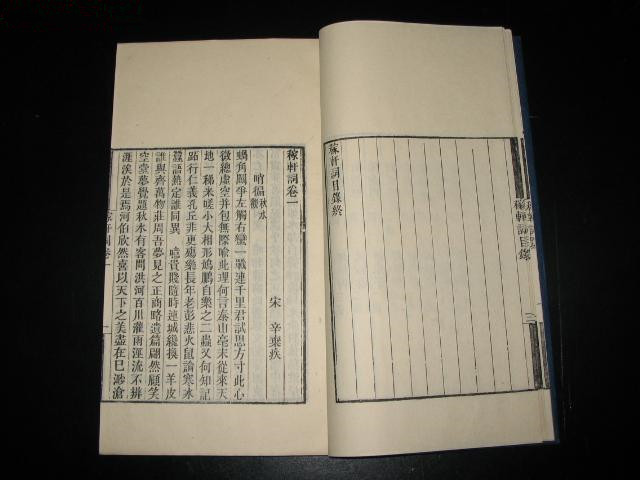 稼軒詞目錄終
稼軒詞目錄
三
稼軒詞卷一
宋 辛棄疾
哨徧 秋水觀
蝸角鬭爭左觸右蠻一戰連千里君試思方寸此心
微總虛空并包無際喻此理何言泰山毫末從來天
地一稊米嗟小大相形鳩鵬自樂之二蟲又何知記
跖行仁義孔丘非更殤樂長年老彭悲火鼠論寒冰
蠶語熱定誰同異 噫貴賤隨時連城纔換一羊皮
誰與齊萬物莊周吾夢見之正商略遺篇翩然顧笑
空堂夢覺題秋水有客問洪河百川灌雨涇流不辨
涯涘於是焉河伯欣然喜以天下之美盡在已渺滄
稼軒詞卷一
一